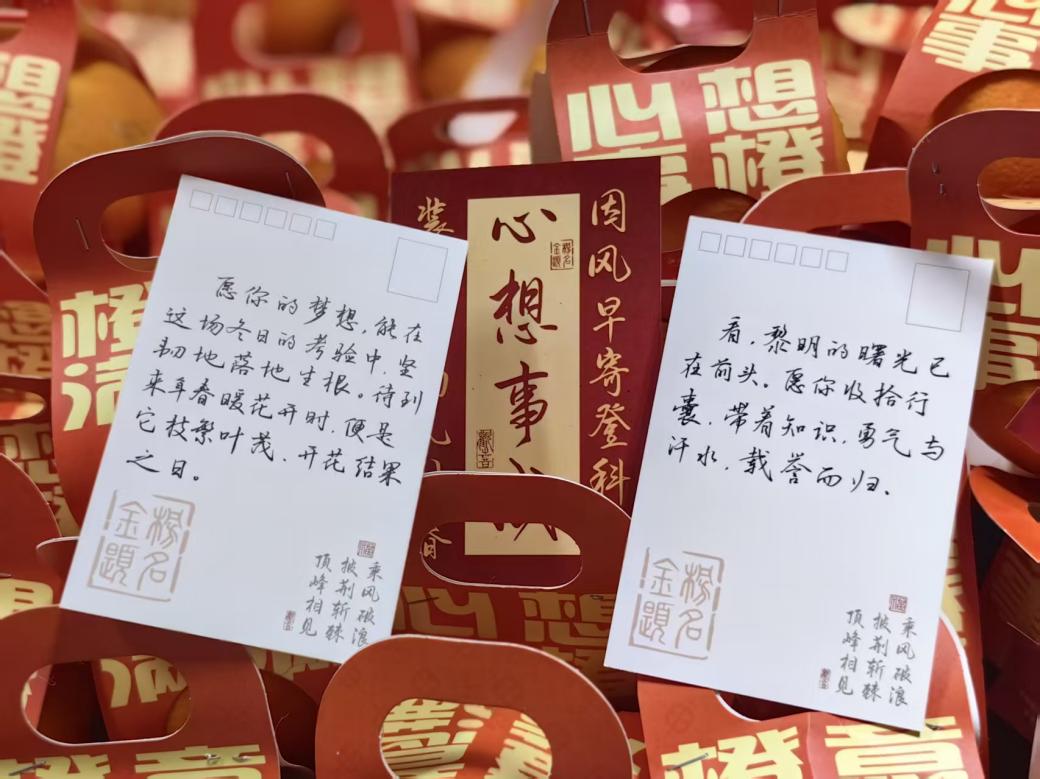 愿你的梦想，能在
这场冬日的考验中，坚
韧地落地生根。待到
来年春暖花开时，便是
它枝繁叶茂、开花结果
之日。
楊名
金題
乘风破浪
披荆斩棘
顶峰相见
因风早寄登科
心想事
楊名
金題
装
看，黎明的曙光已
在前头。愿你收拾行
囊，带着知识，勇气与
汗水，载誉而归。
楊名
金題
乘风破浪
披荆斩棘
顶峰相见
心想
事橙
想
橙
心
事
橙
心想
橙意